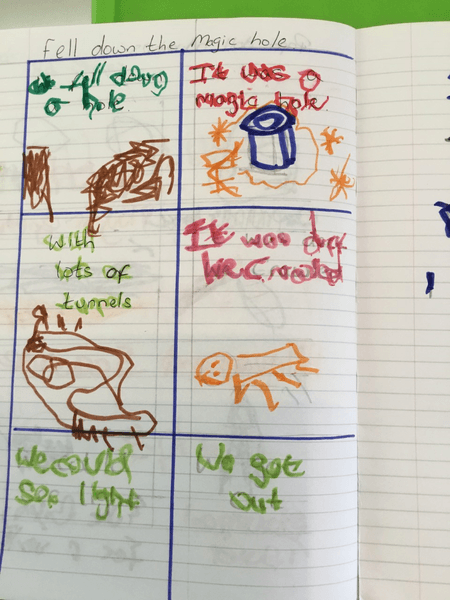 fell down the magic hole
fell down
a hole
It was a
magic hole
with
lots of
tunnels
It was dark
We Crawled
We could
see light
We got
out